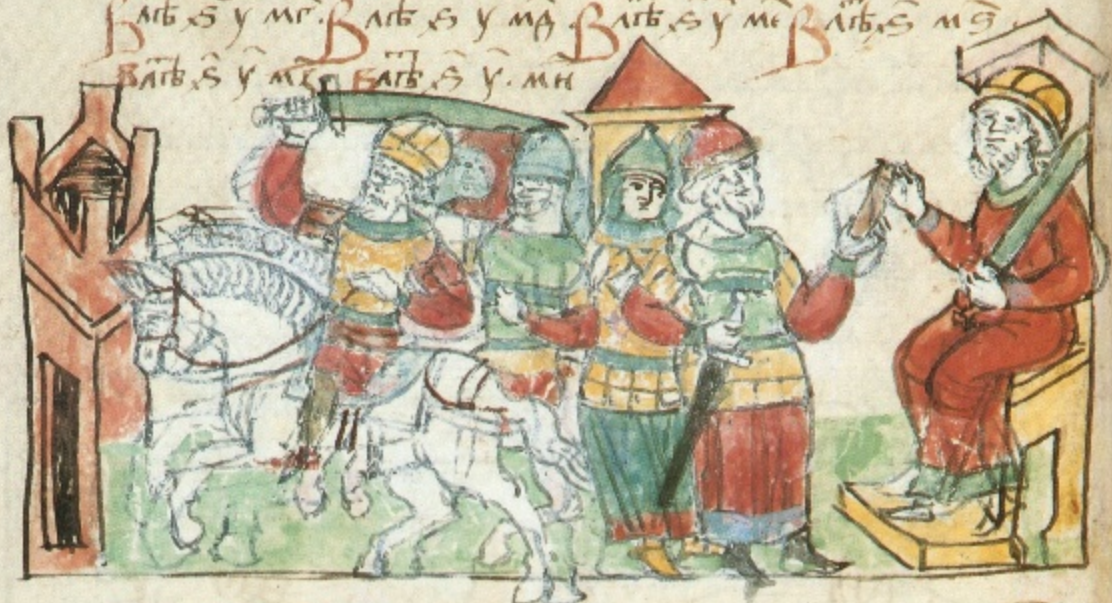 В лѣⷮ ѕ҃ у҃ мг҃. В лѣⷮ ѕ҃ у҃ мд҃ В лѣⷮ ѕ҃ у҃ ме҃ В лѣⷮ ѕ҃ мѕ҃.
В лѣⷮ ѕ҃ у҃ мз҃ В лѣⷮ ѕ҃ у҃. ми҃